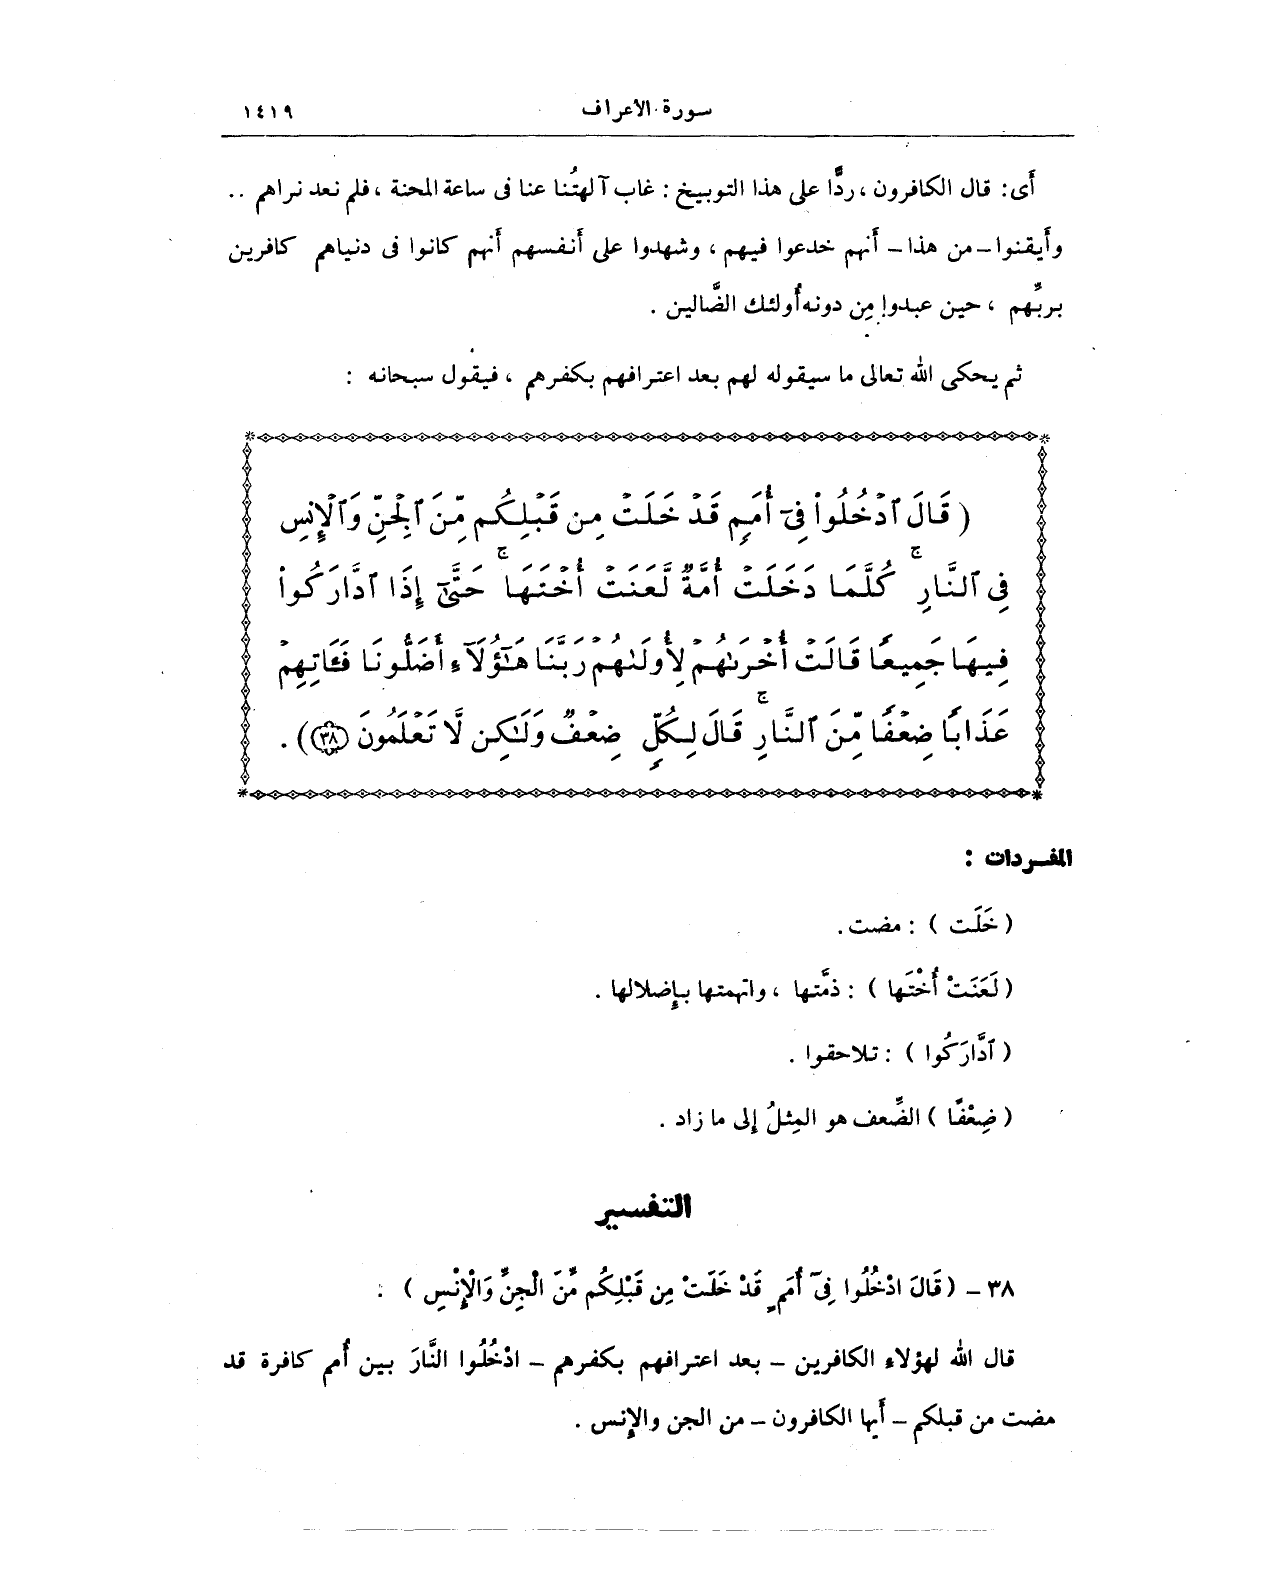 سورة الأعراف ١٤١٩
أى: قال الكافرون ، ردًّا على هذا التوبيخ : غاب آلهتُنا عنا فى ساعة المحنة ، فلم نعد نراهم ..
وأيقنوا – من هذا – أنهم خدعوا فيهم ، وشهدوا على أنفسهم أنهم كانوا فى دنياهم كافرين
بربِّهم ، حين عبدوا مِن دونه أُولئك الضَّالين .
ثم يحكى الله تعالى ما سيقوله لهم بعد اعترافهم بكفرهم ، فيقول سبحانه :
( قَالَ ٱدْخُلُوا۟ فِىٓ أُمَمٍ قَدْ خَلَتْ مِن قَبْلِكُم مِّنَ ٱلْجِنِّ وَٱلْإِنسِ
فِى ٱلنَّارِ ۚ كُلَّمَا دَخَلَتْ أُمَّةٌ لَّعَنَتْ أُخْتَهَا ۚ حَتَّىٰٓ إِذَا ٱدَّارَكُوا۟
فِيهَا جَمِيعًا قَالَتْ أُخْرَىٰهُمْ لِأُولَىٰهُمْ رَبَّنَا هَٰٓؤُلَآءِ أَضَلُّونَا فَـَٔاتِهِمْ
عَذَابًا ضِعْفًا مِّنَ ٱلنَّارِ ۚ قَالَ لِكُلٍّ ضِعْفٌ وَلَٰكِن لَّا تَعْلَمُونَ (٣٨)) .
المفردات :
( خَلَت ) : مضت.
( لَعَنَتْ أُخْتَها ) : ذمَّتها ، واتهمتها بإضلالها .
( ٱدَّارَكُوا ) : تلاحقوا .
( ضِعْفًا ) الضِّعف هو المِثلُ إلى ما زاد .
التفسير
٣٨ – ( قَالَ ادْخُلُوا فِىٓ أُمَمٍ قَدْ خَلَتْ مِن قَبْلِكُم مِّنَ الْجِنِّ وَالْإِنْسِ ) :
قال الله لهؤلاء الكافرين – بعد اعترافهم بكفرهم – ادْخُلُوا النَّارَ بين أُمم كافرة قد
مضت من قبلكم – أَيها الكافرون – من الجن والإنس .